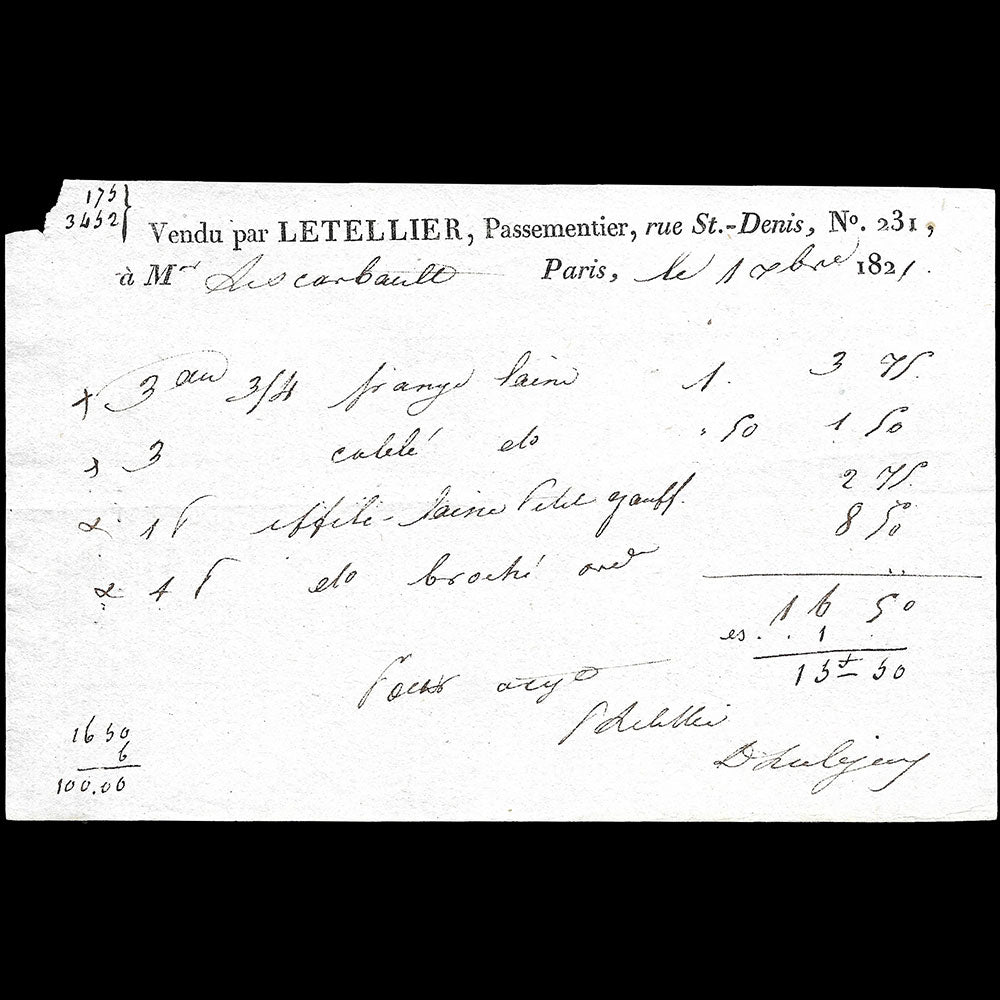 175
3452
Vendu par LETELLIER, Passementier, rue St.-Denis, No. 231,
à Mr Lescarbault Paris, le 1 7bre 1821.
3 au 3/4 frange laine 1. 3 75.
3 cablé do . 50 1 50
1 P effilé laine Petit gauff. 2 75.
4 P do broché 8 50
16 50
es. . 1 .
15 50
Pour acqt
P Letellier
16 50
6
100.00